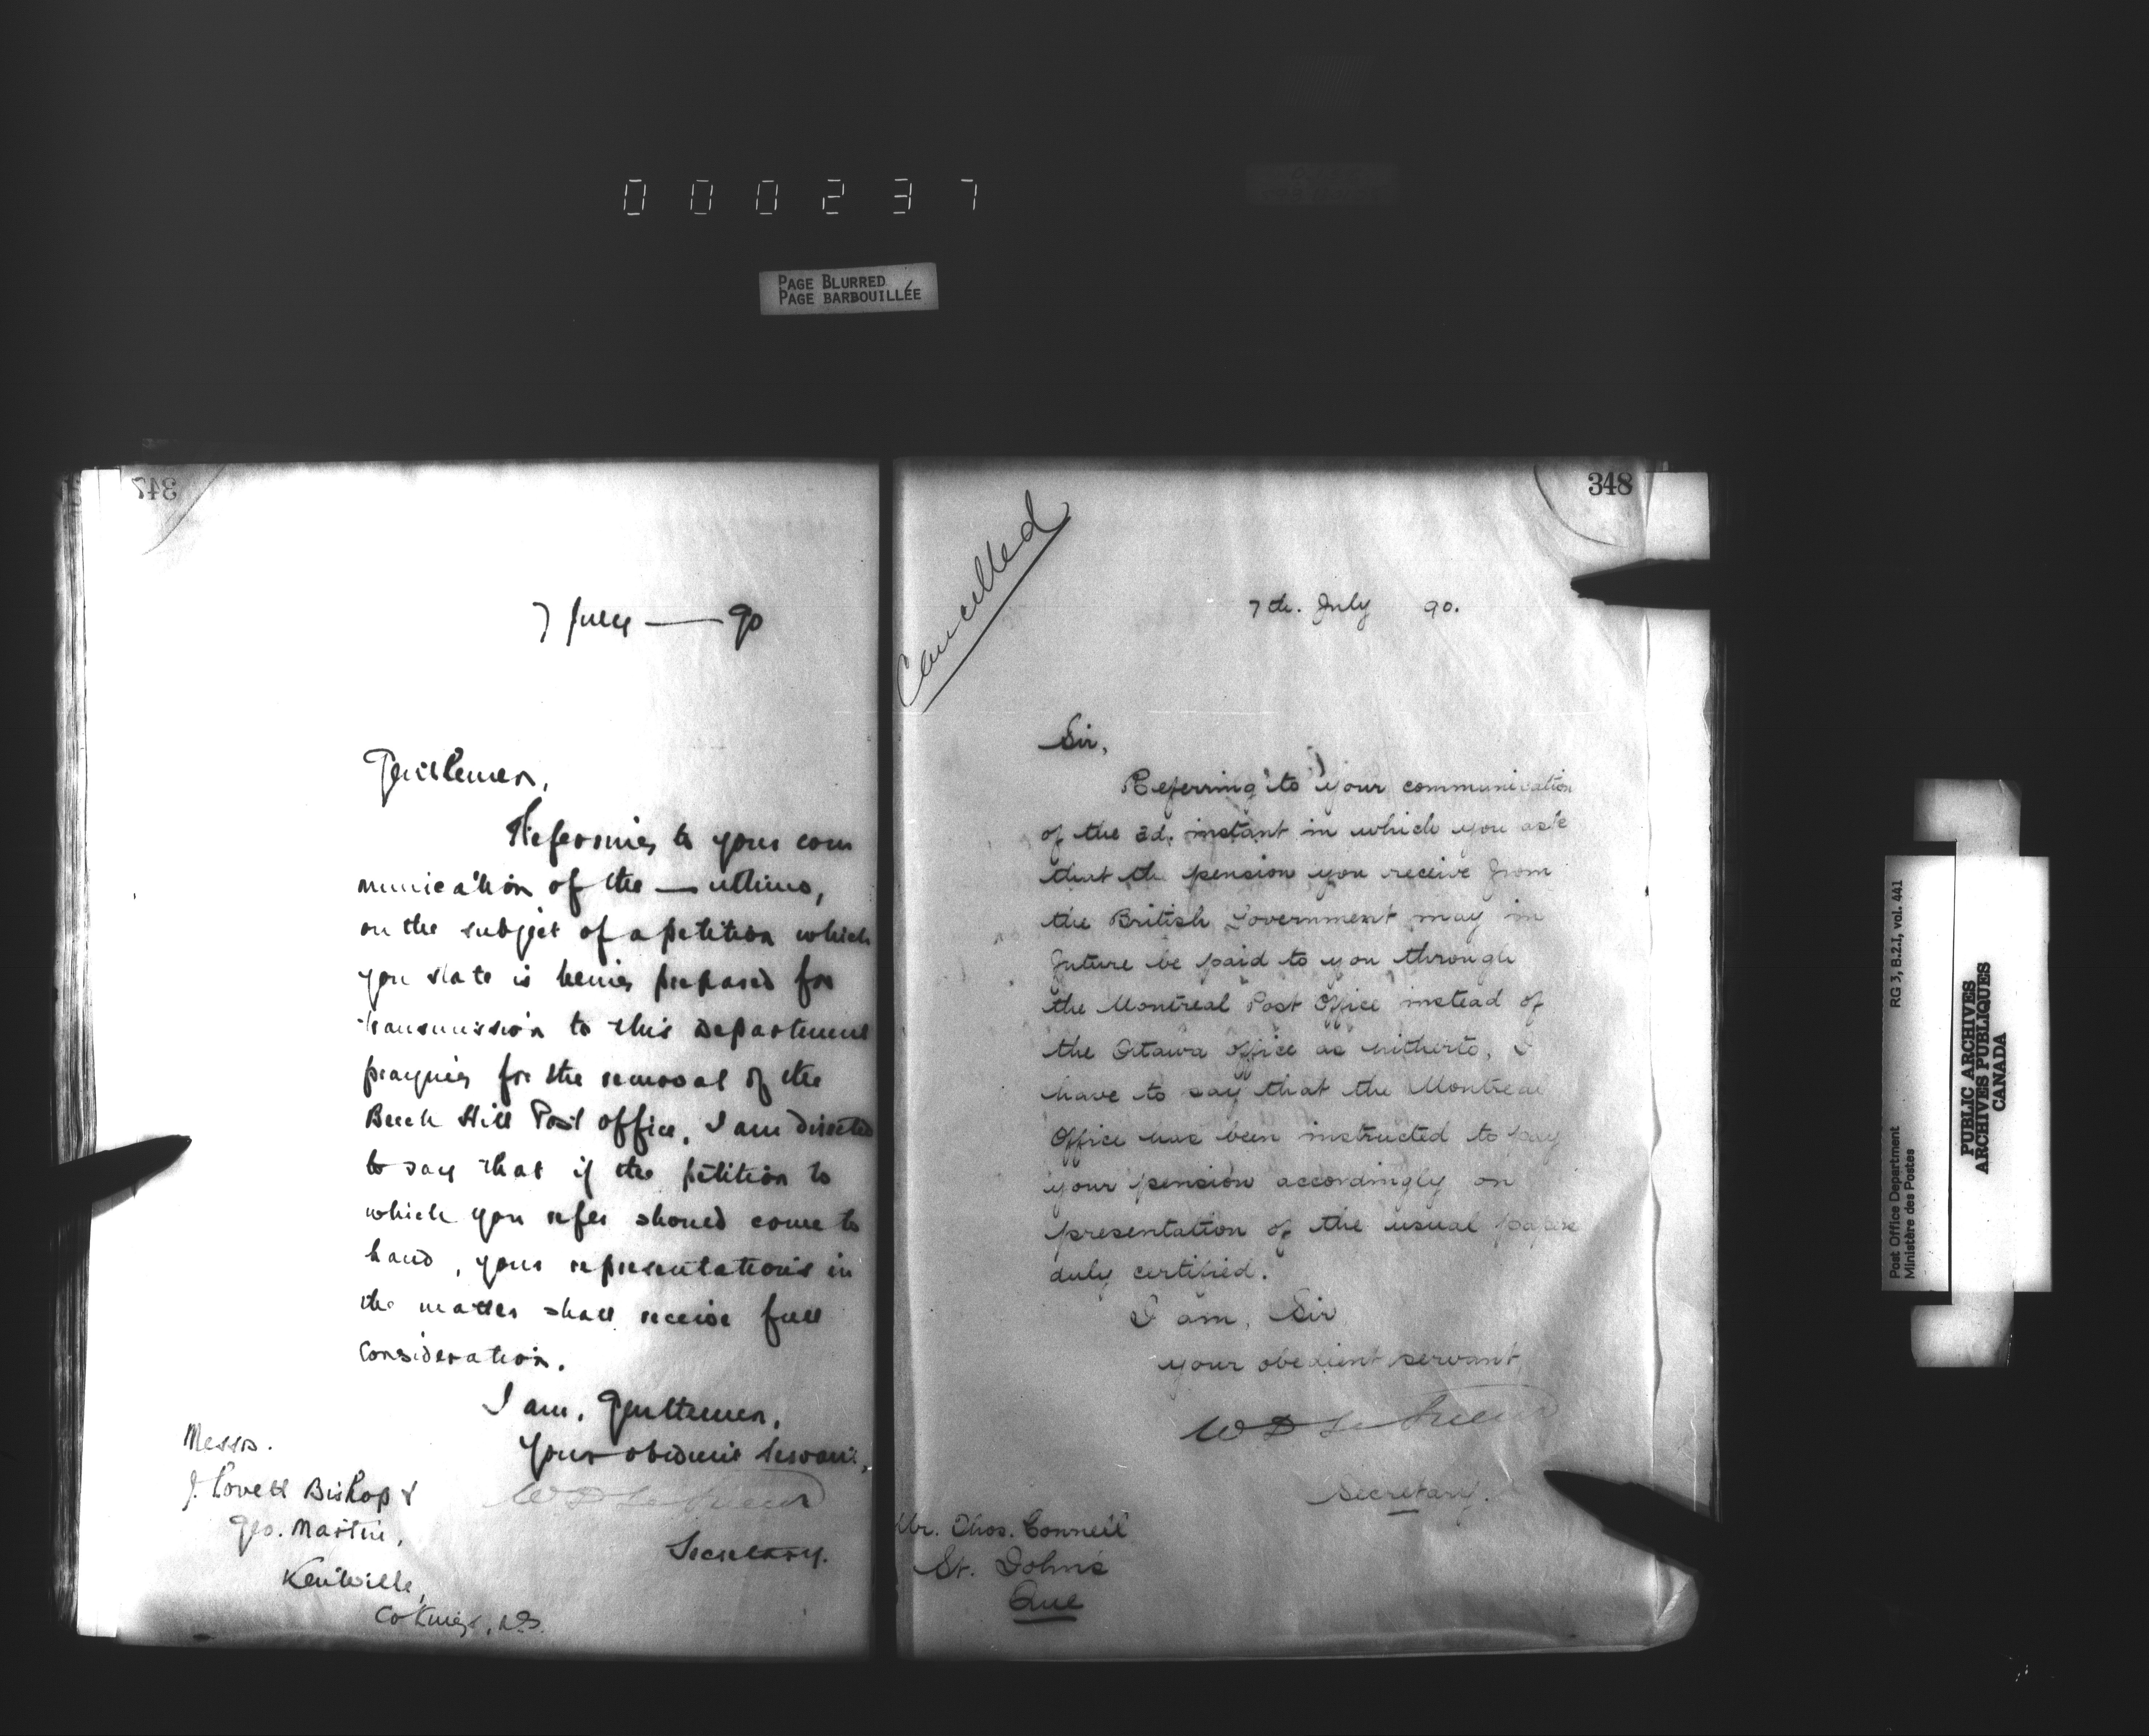 000237
PAGE BLURRED
PAGE BARBOUILLÉE
347
7 July — 90
Gentlemen,
Referring to your com
munication of the — ultimo,
on the subject of a petition which
you state is being prepared for
transmission to this Department
praying for the removal of the
Beech Hill Post Office, I am directed
to say that if the petition to
which you refer should come to
hand, your representations in
the matter shall receive full
consideration.
I am, Gentlemen,
Your obedient servant,
W D LeSueur
Secretary.
Messrs.
J. Lovett Bishop &
Geo. Martin,
Kentville,
Co Kings, N.S.
348
Cancelled
7th. July 90.
Sir,
Referring to your communication
of the 2d. instant in which you ask
that the pension you receive from
the British Government may in
future be paid to you through
the Montreal Post Office instead of
the Ottawa office as hitherto, I
have to say that the Montreal
Office has been instructed to pay
your pension accordingly on
presentation of the usual papers
duly certified.
I am, Sir
your obedient servant,
W D LeSueur
Secretary.
Mr. Thos. Connell
St. Johns
Que
Post Office Department
Ministère des Postes
RG 3, B.2.I, vol. 441
PUBLIC ARCHIVES
ARCHIVES PUBLIQUES
CANADA